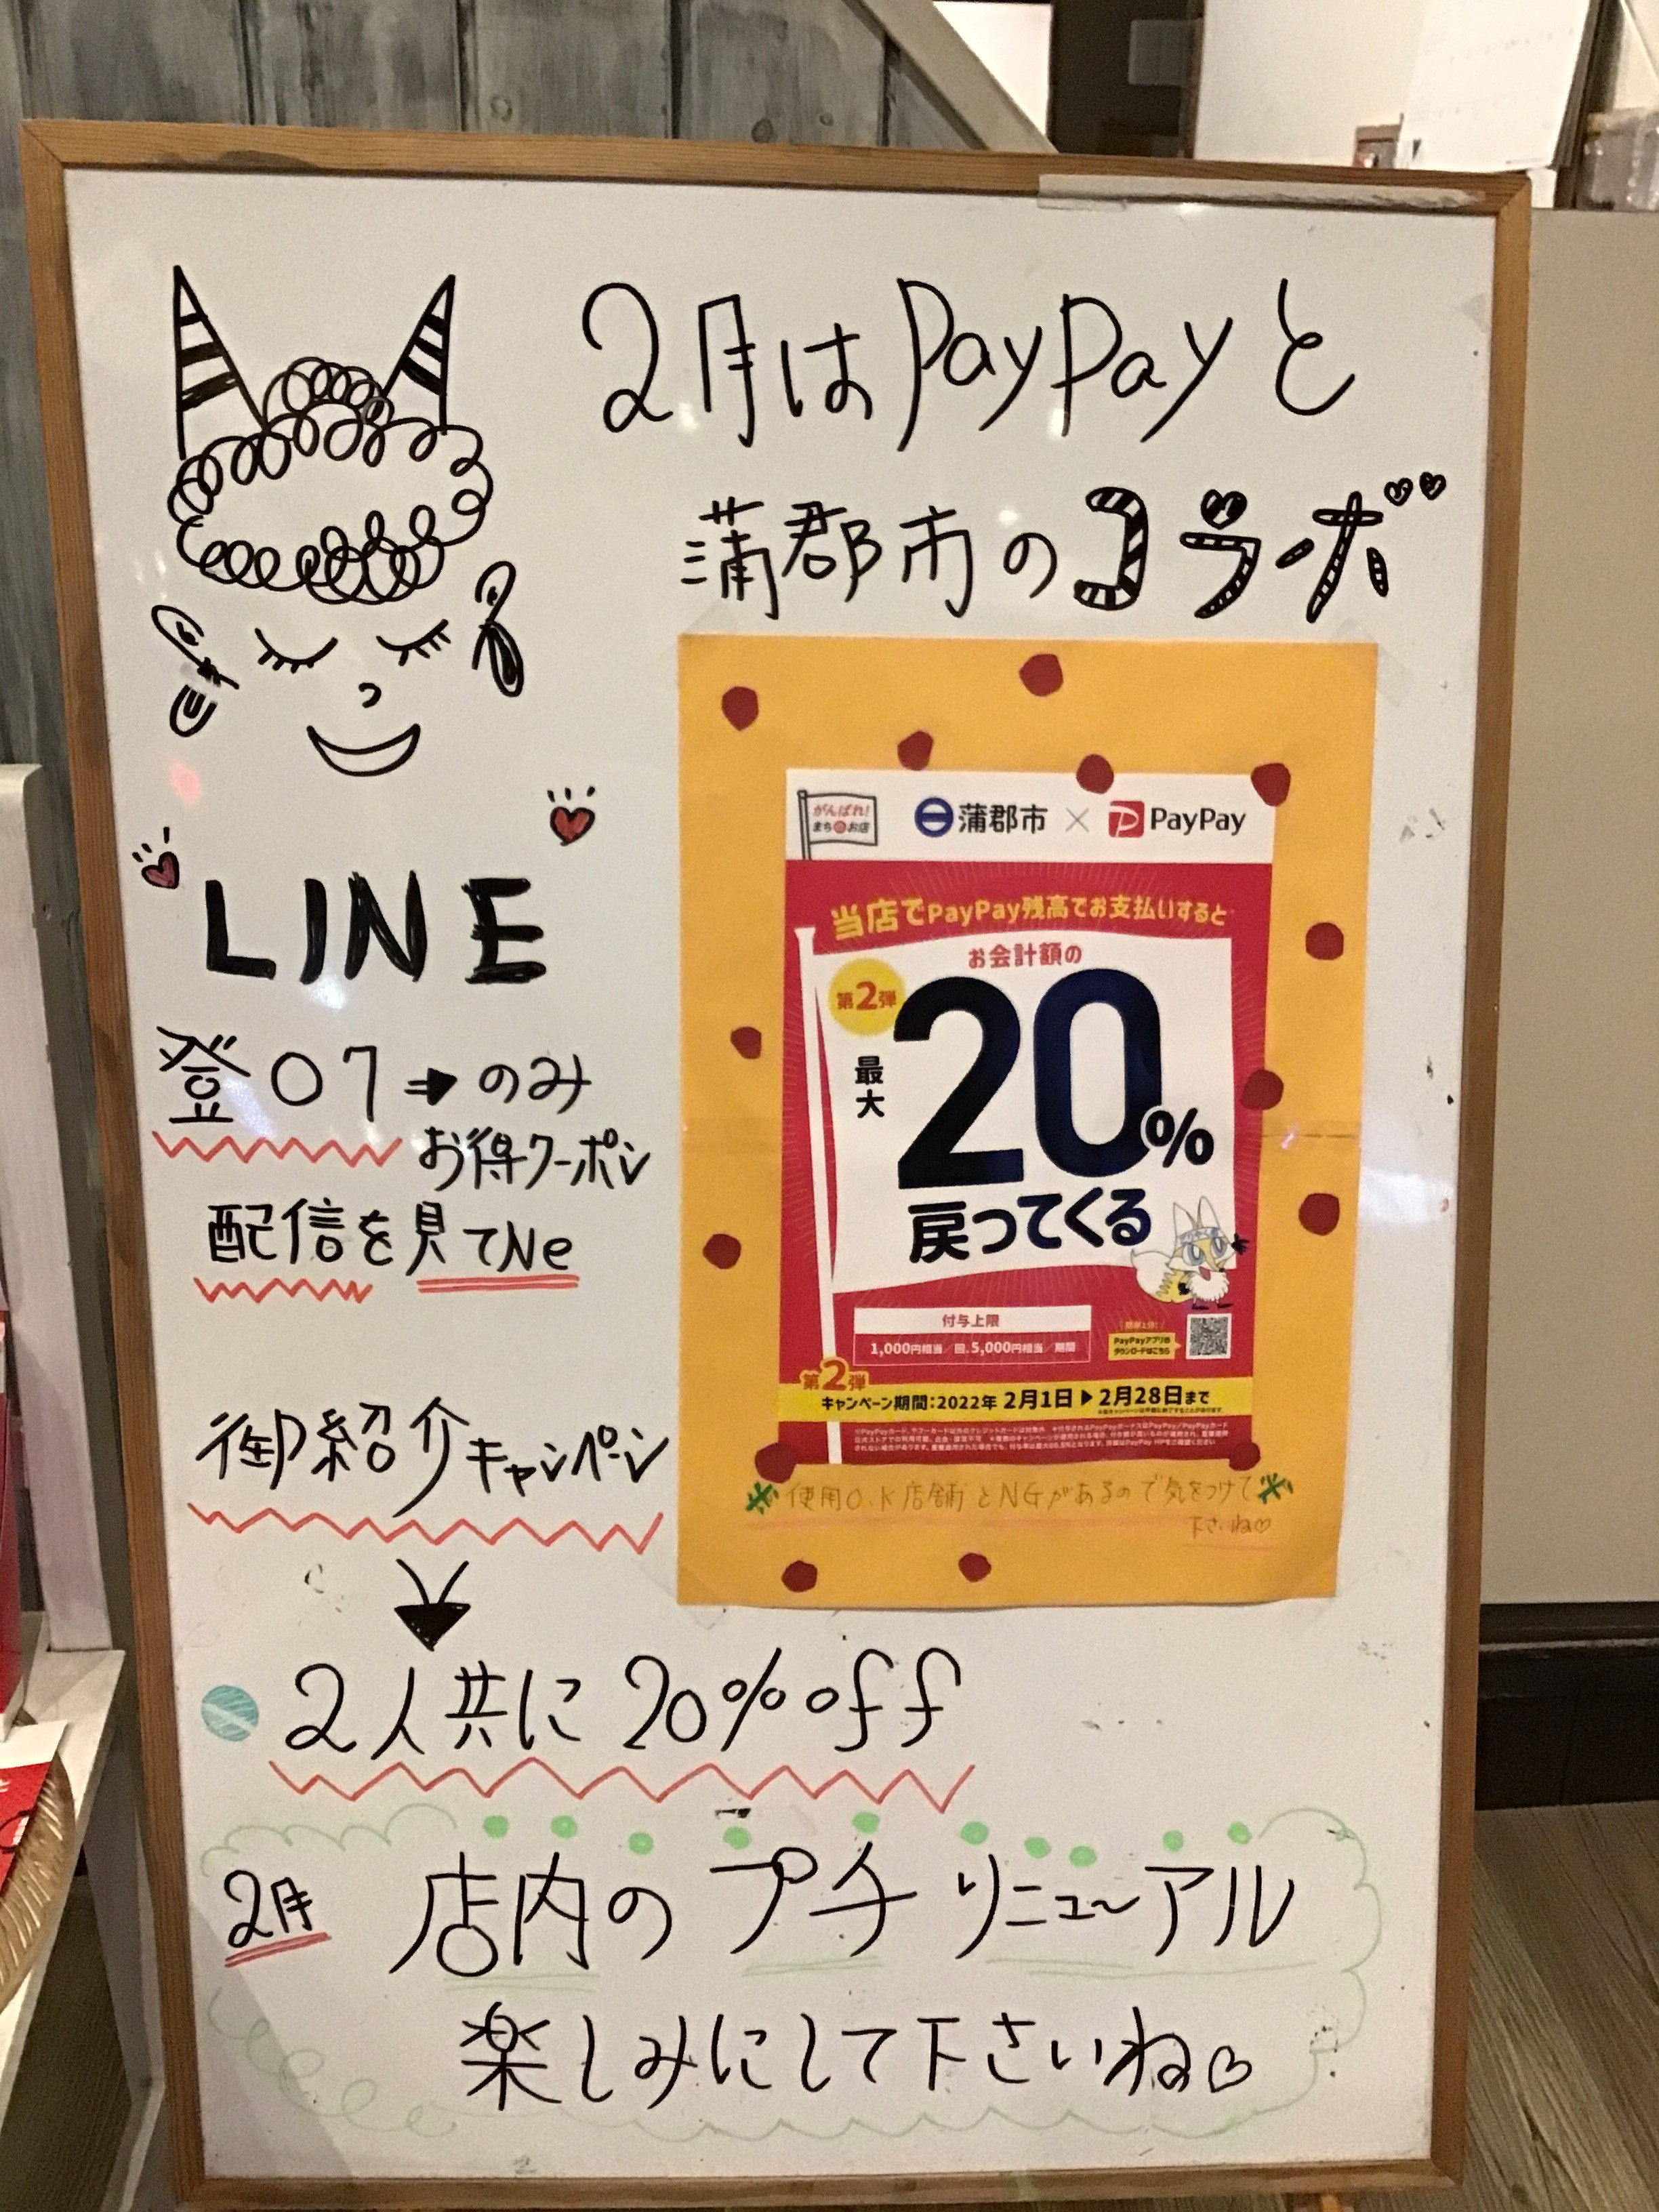 2月はPayPayと
蒲郡市のコラボ
がんばれ!
まちのお店
蒲郡市 × PayPay
当店でPayPay残高でお支払いすると
お会計額の
第2弾
最大
20%
戻ってくる
付与上限
1,000円相当/回.5,000円相当/期間
PayPayアプリの
ダウンロードはこちら
第2弾
キャンペーン期間:2022年 2月1日▶2月28日まで
※使用O.K店舗とNGがあるので気をつけて※
下さいね♡
LINE
登〇7→のみ
お得クーポン
配信を見てNe
御紹介キャンペーン
2人共に20%off
2月 店内のプチリニューアル
楽しみにして下さいね♡